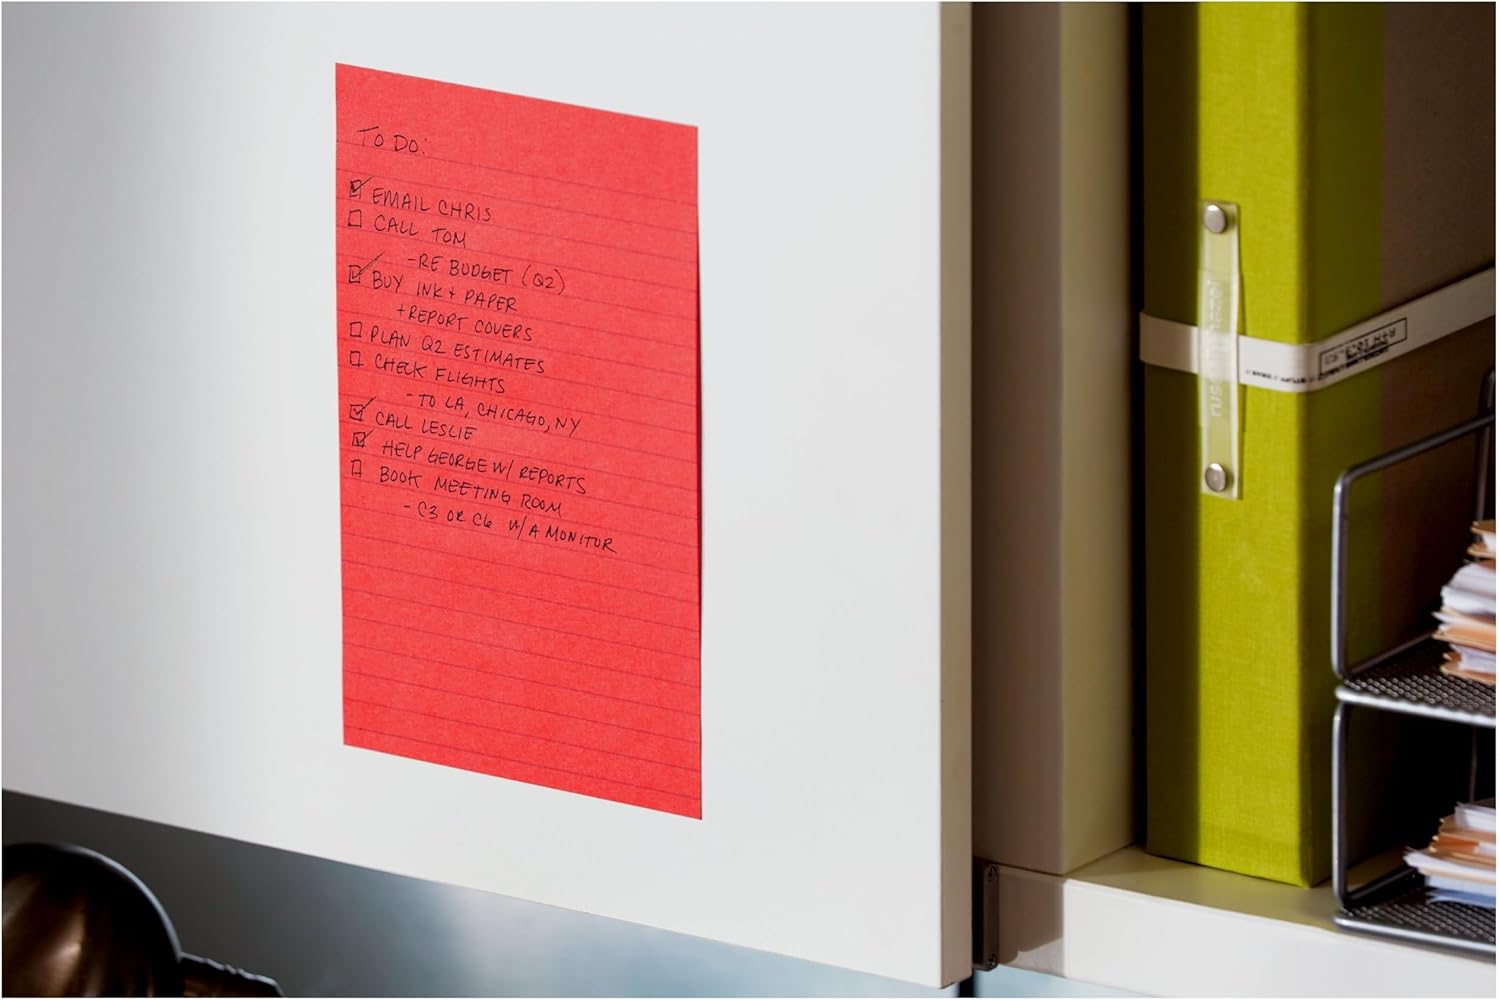 TO DO:
☑ EMAIL CHRIS
☐ CALL TOM
-RE BUDGET (Q2)
☑ BUY INK + PAPER
+REPORT COVERS
☐ PLAN Q2 ESTIMATES
☐ CHECK FLIGHTS
- TO LA, CHICAGO, NY
☑ CALL LESLIE
☑ HELP GEORGE W/ REPORTS
☐ BOOK MEETING ROOM
- C3 OR C6 W/ A MONITOR